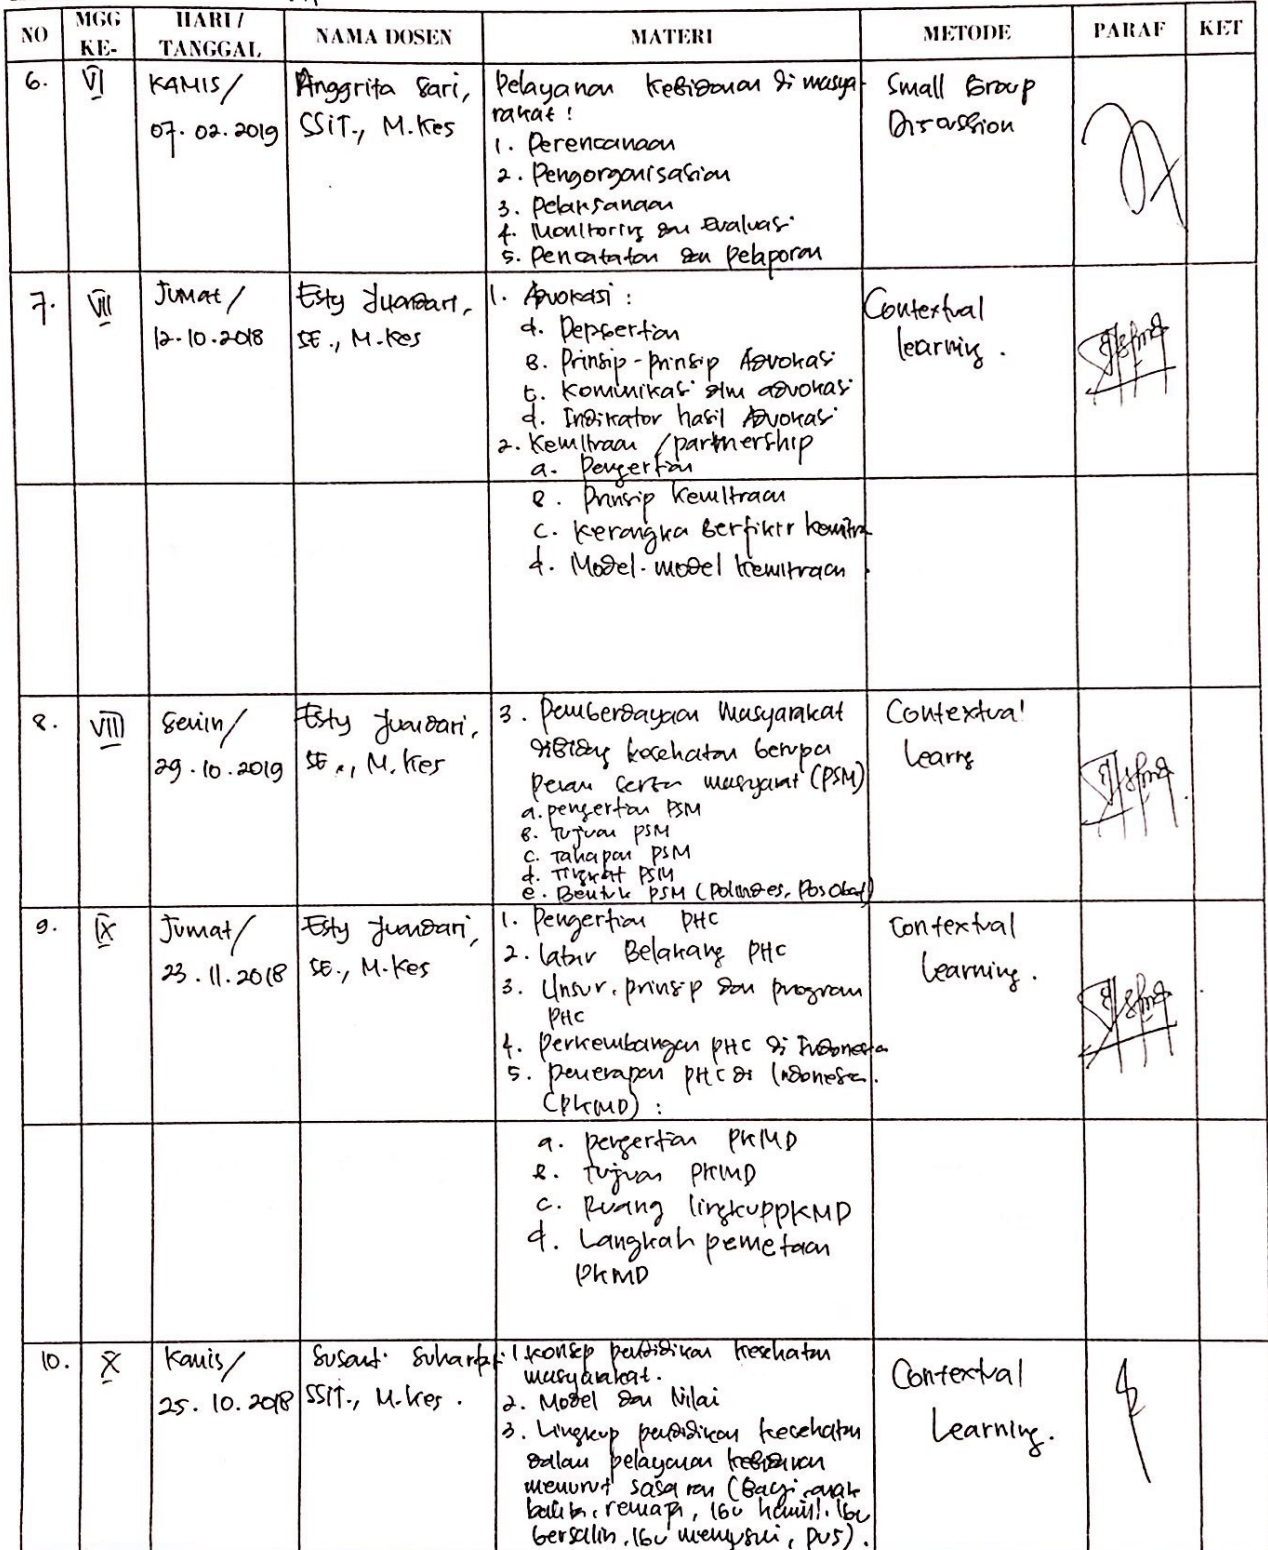 NO MGG KE- HARI / TANGGAL NAMA DOSEN MATERI METODE PARAF KET
6. VI KAMIS / 07. 02. 2019
Anggrita Sari, SSiT., M.Kes
Pelayanan Kebidanan di masya-
rakat :
1. Perencanaan
2. Pengorganisasian
3. Pelaksanaan
4. Monitoring dan Evaluasi
5. Pencatatan dan Pelaporan
Small Group
Discussion
7. VII Jumat / 12.10.2018
Esty Juandari, SE., M.Kes
1. Advokasi :
a. Pengertian
B. Prinsip-prinsip Advokasi
c. Komunikasi dlm advokasi
d. Indikator hasil Advokasi
2. Kemitraan / partnership
a. Pengertian
Contextual
learning .
B. Prinsip Kemitraan
c. Kerangka Berfikir kemitra
d. Model-model kemitraan
8. VIII Senin / 29.10.2019
Esty Juandari, SE., M.Kes
3. Pemberdayaan Masyarakat
dibidang kesehatan berupa
peran serta masyarat (PSM)
a. pengertian PSM
B. Tujuan PSM
c. Tahapan PSM
d. Tingkat PSM
e. Bentuk PSM (Polindes, Pos Obat)
Contextual
Learng
9. IX Jumat / 23.11.2018
Esty Juandari, SE., M.Kes
1. Pengertian PHC
2. latar Belakang PHC
3. Unsur, prinsip dan program
PHC
4. Perkembangan PHC di Indonesia
5. penerapan PHC di Indonesia.
(PKMD) :
Contextual
learning.
a. pengertian PKMD
B. Tujuan PKMD
c. Ruang lingkup PKMD
d. Langkah pemetaan
PKMD
10. X Kamis / 25.10.2018
Susanti Suhartati SSiT., M.Kes .
1. Konsep pendidikan kesehatan
masyarakat.
2. Model dan Nilai
3. Lingkup pendidikan kesehatan
dalam pelayanan kebidanan
menurut sasaran (Bagi anak
balita, remaja, Ibu hamil, Ibu
bersalin, Ibu menyusui, PUS).
Contextual
Learning.